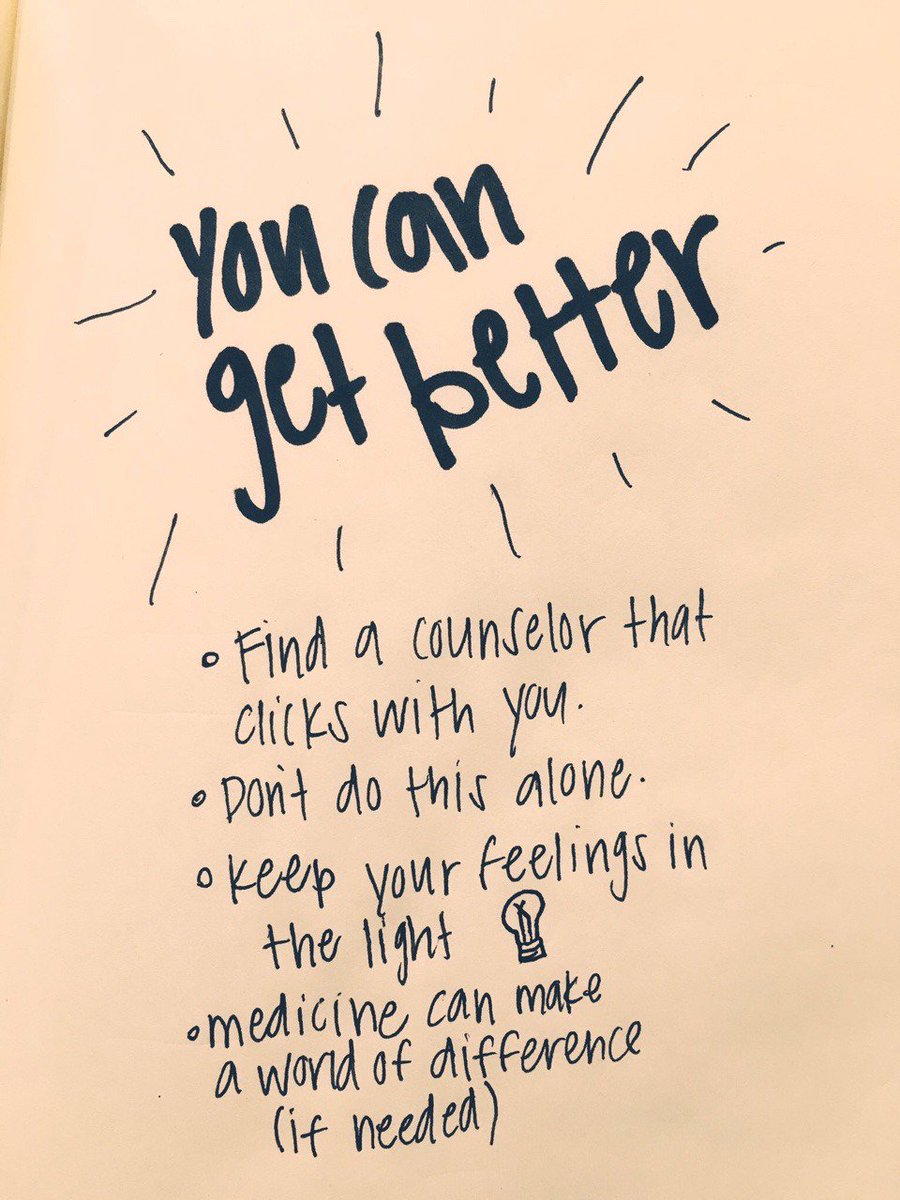 You can
get better
• Find a counselor that
clicks with you.
• Don't do this alone.
• keep your feelings in
the light
• medicine can make
a world of difference
(if needed)